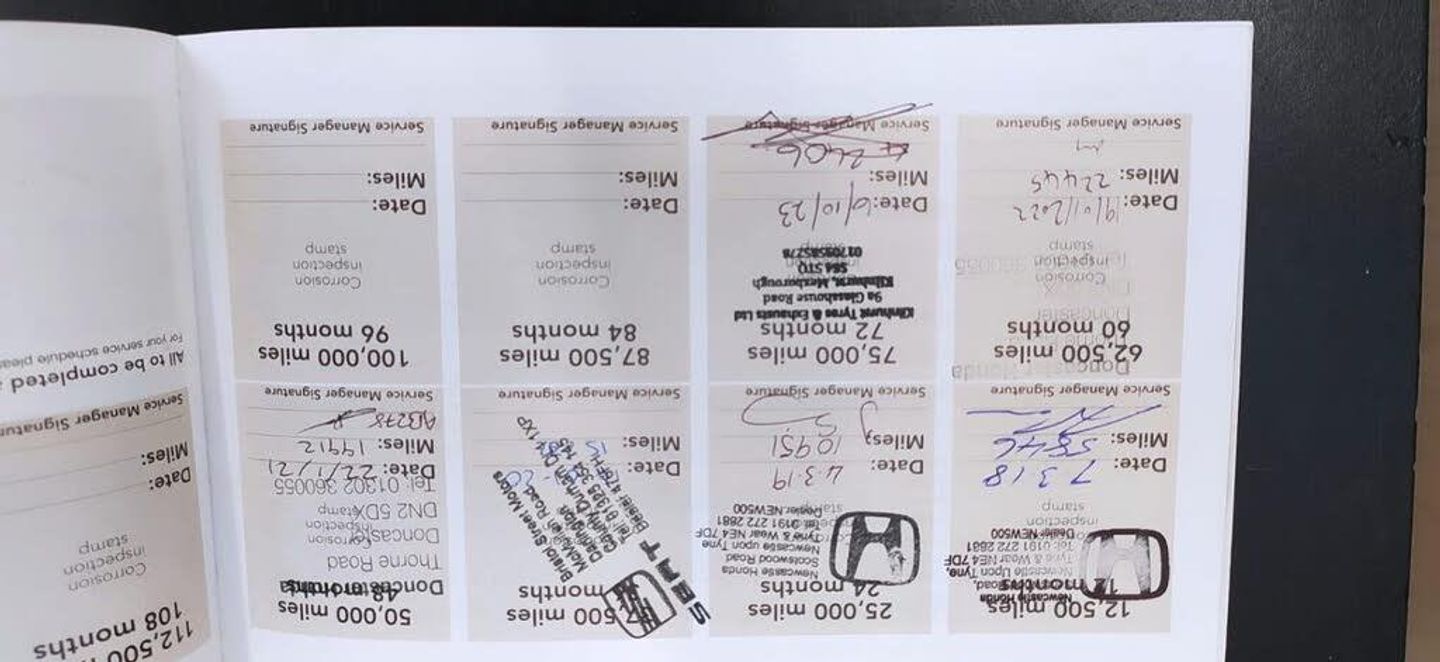 12,500 miles
12 months
Newcastle Honda
Road
Newcastle Upon Tyne,
Tyne & Wear NE4 7DF
Tel: 0191 272 2881
Dealer NEW500
inspection
stamp
Date: 7 3 18
Miles: 5846
Service Manager Signature
25,000 miles
24 months
Newcastle Honda
Scotswood Road
Newcastle upon Tyne
Tyne & Wear NE4 7DF
Tel: 0191 272 2881
Dealer NEW500
Date: 4.3.19
Miles: 10951
Service Manager Signature
37,500 miles
months
SEAT
Bristol Street Motors
Road
Darlington
Durham
Date:
Miles:
Service Manager Signature
50,000 miles
48 months
Doncaster Honda
Thorne Road
Doncaster
Corrosion
inspection
DN2 5DX
stamp
Tel: 01302 360055
Date: 22/1/21
Miles: 19912
AB3278
Service Manager Signature
112,500
108 months
Corrosion
inspection
stamp
Date:
Miles:
Service Manager Signature
62,500 miles
60 months
Doncaster Honda
Doncaster
Corrosion
inspection
360055
stamp
Date: 19/01/2022
Miles: 22445
Service Manager Signature
75,000 miles
72 months
Kilnhurst Tyres & Exhausts Ltd
9a Glasshouse Road
Kilnhurst, Mexborough
S64 5TQ
01709585278
stamp
Date: 6/10/23
Miles:
2406
Service Manager Signature
87,500 miles
84 months
Corrosion
inspection
stamp
Date:
Miles:
Service Manager Signature
100,000 miles
96 months
Corrosion
inspection
stamp
Date:
Miles:
Service Manager Signature
All to be completed
For your service schedule